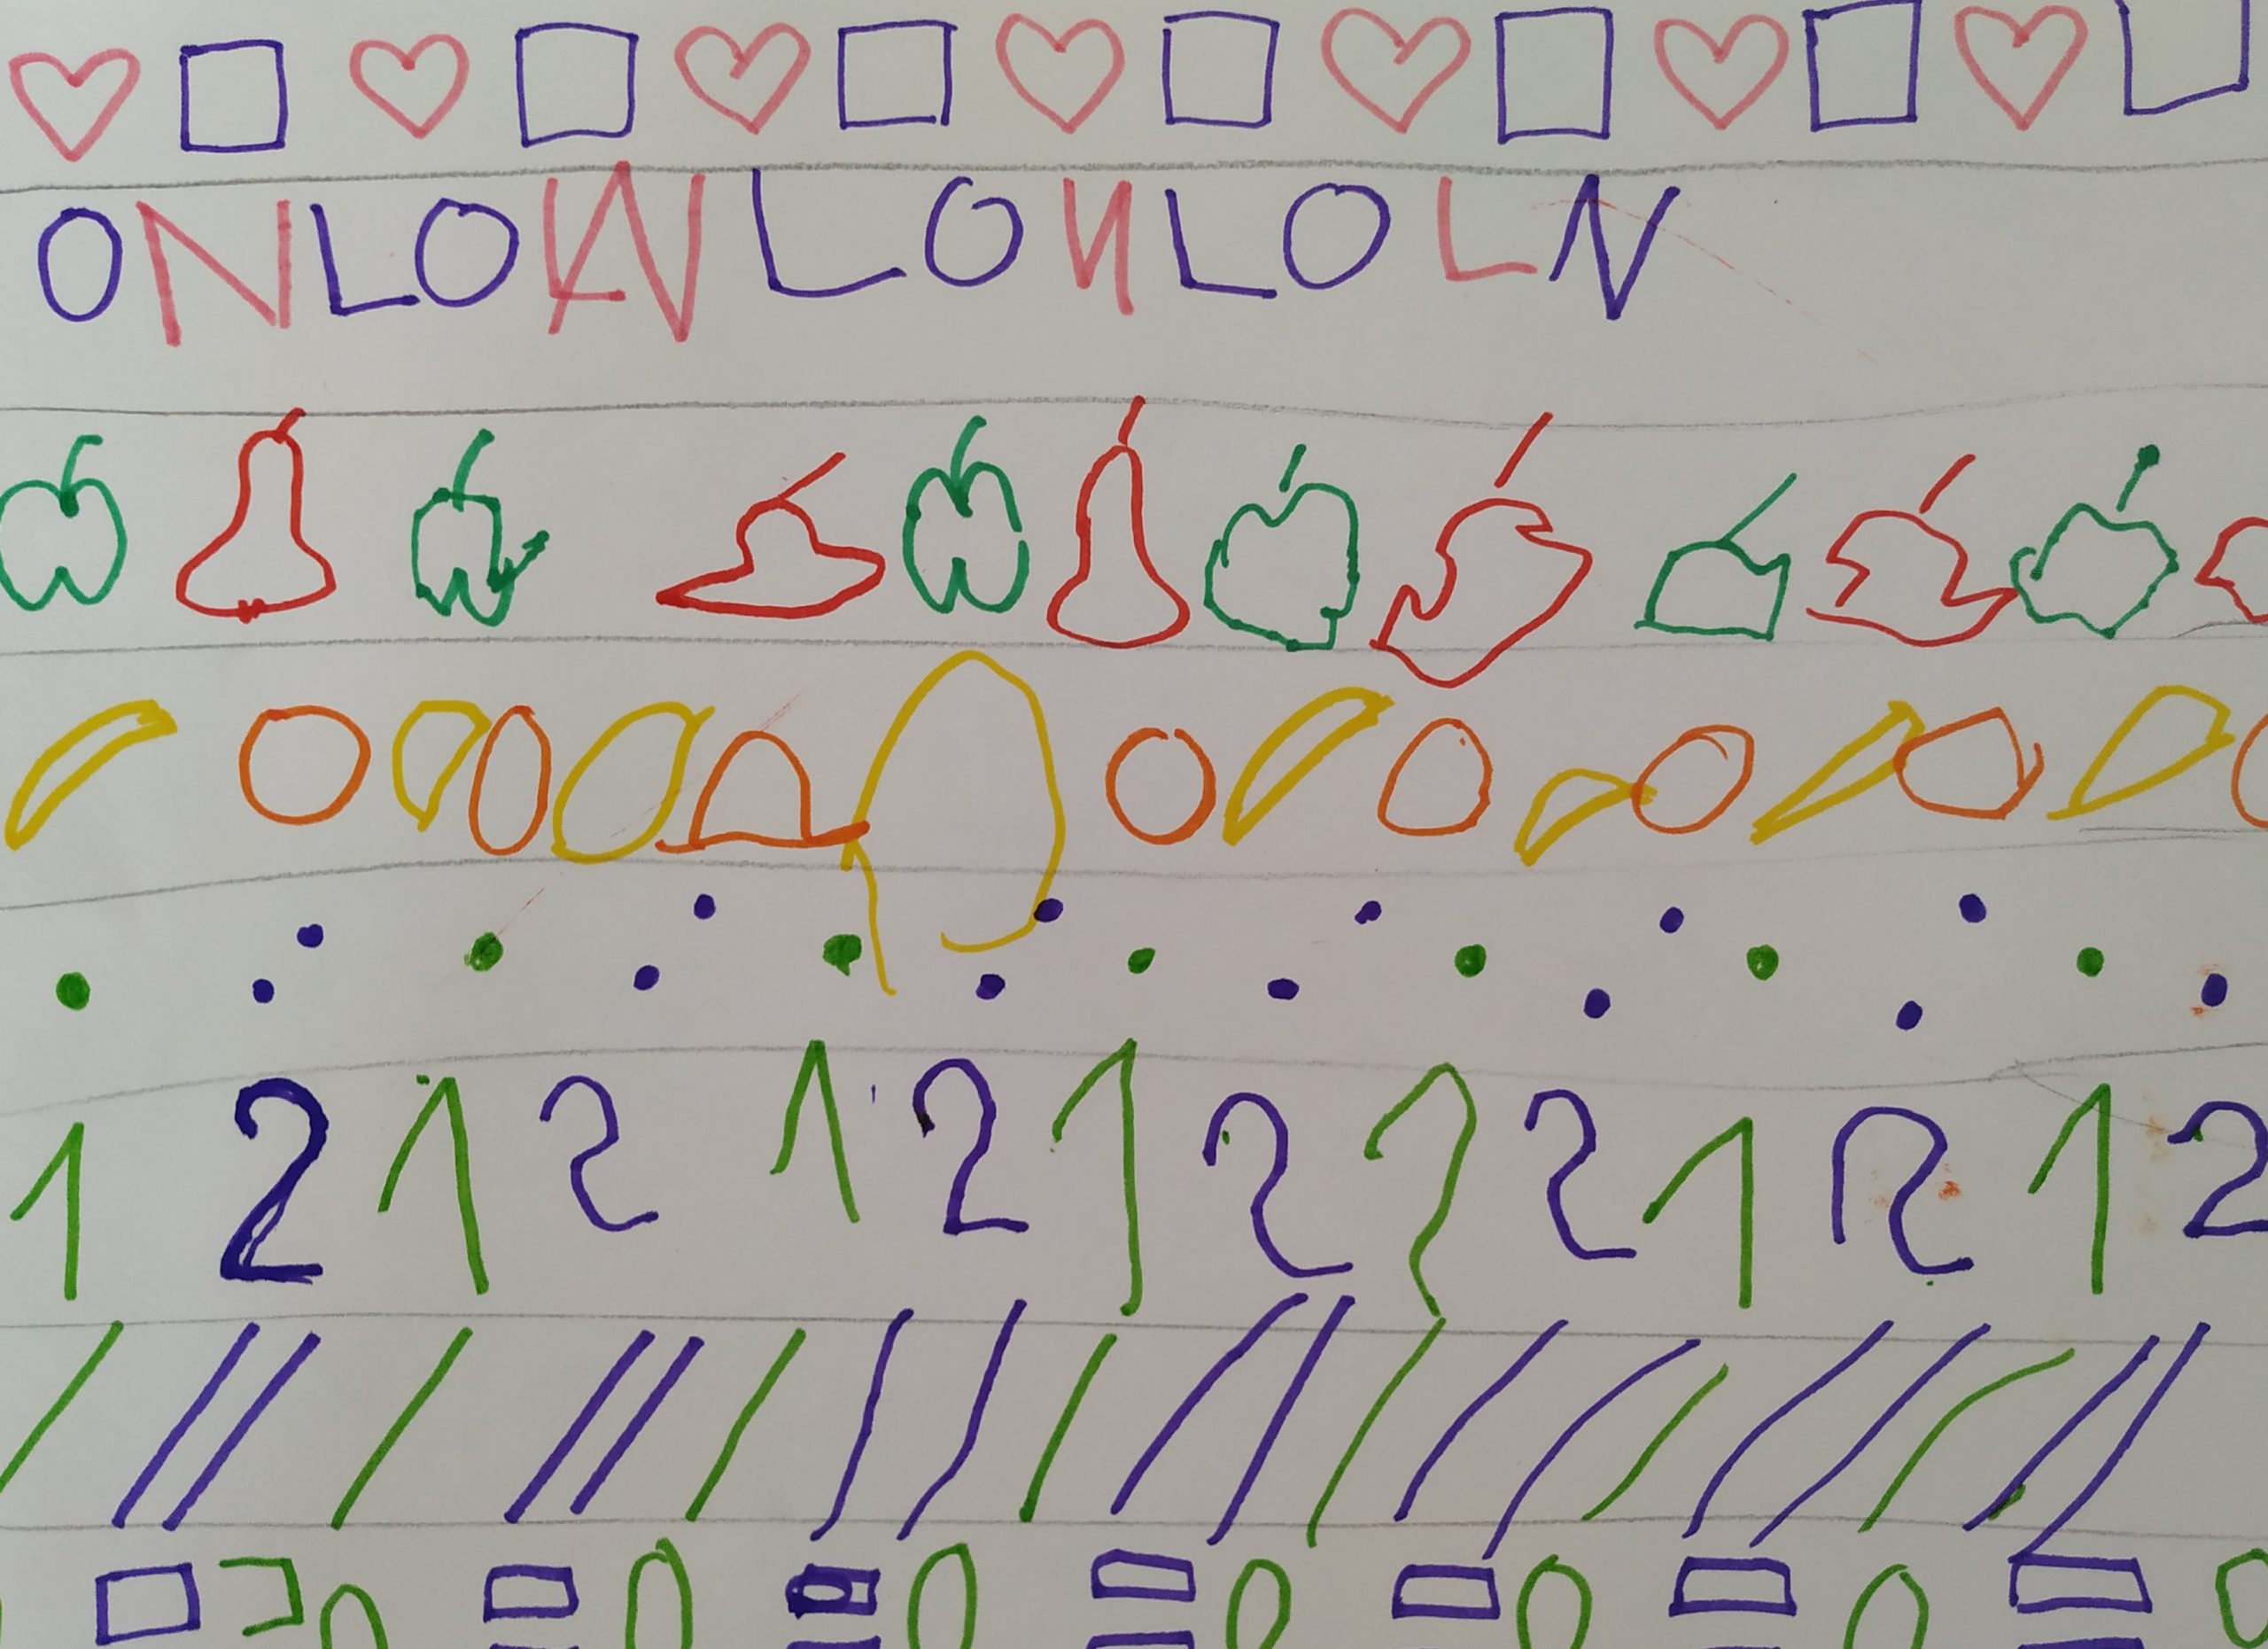 ONLONLONLOLN
12121212121212